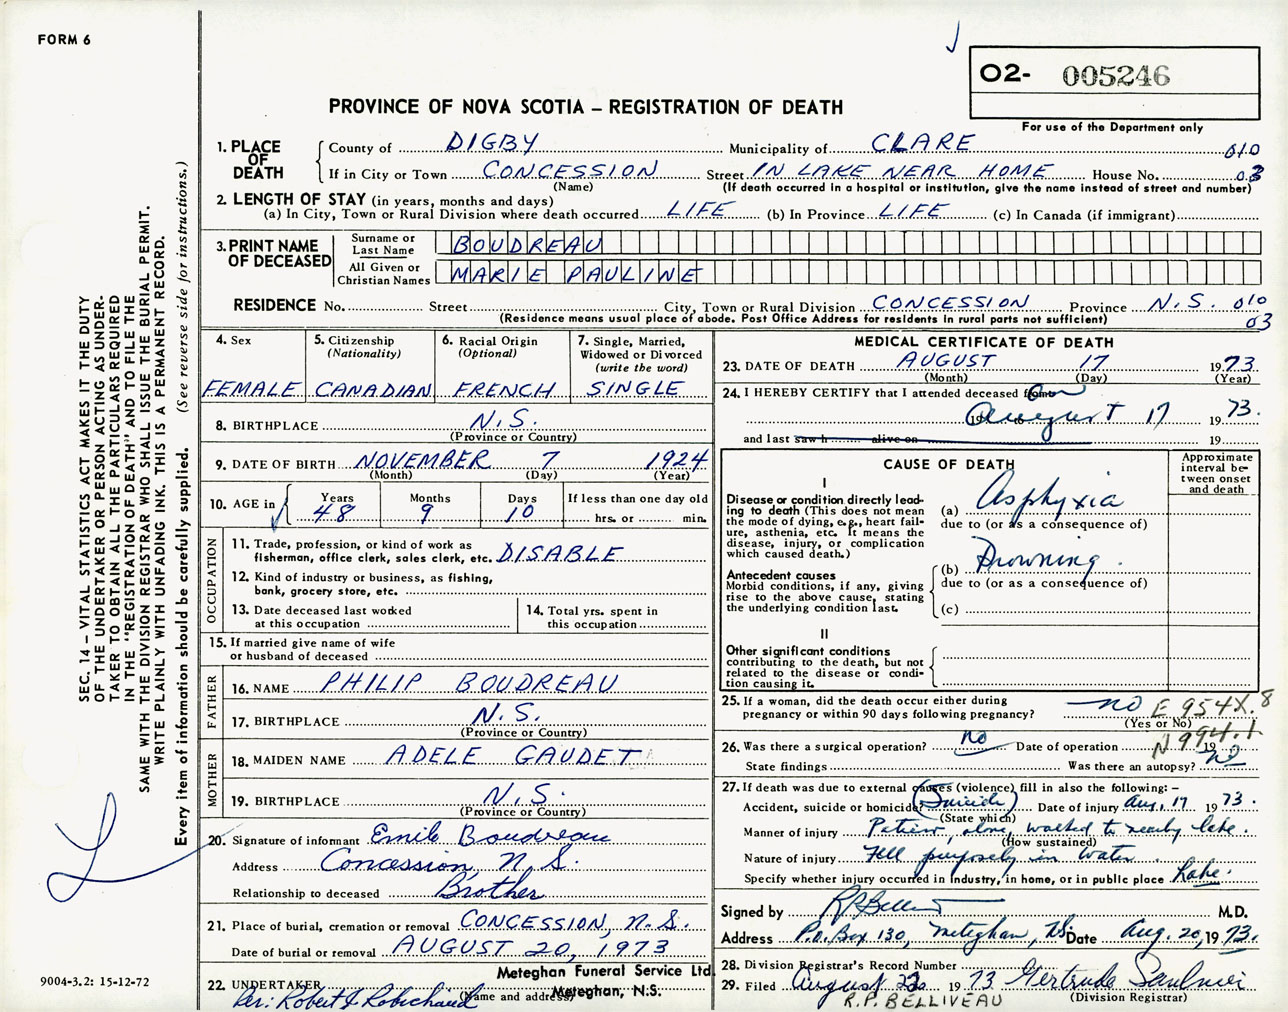 FORM 6
O2- 005246
For use of the Department only
PROVINCE OF NOVA SCOTIA – REGISTRATION OF DEATH
SEC. 14 – VITAL STATISTICS ACT MAKES IT THE DUTY
OF THE UNDERTAKER OR PERSON ACTING AS UNDER-
TAKER TO OBTAIN ALL THE PARTICULARS REQUIRED
IN THE "REGISTRATION OF DEATH" AND TO FILE THE
SAME WITH THE DIVISION REGISTRAR WHO SHALL ISSUE THE BURIAL PERMIT.
WRITE PLAINLY WITH UNFADING INK. THIS IS A PERMANENT RECORD.
Every item of information should be carefully supplied. (See reverse side for instructions.)
1. PLACE OF DEATH
County of DIGBY Municipality of CLARE 010
If in City or Town CONCESSION Street IN LAKE NEAR HOME House No. 03
(Name) (If death occurred in a hospital or institution, give the name instead of street and number)
2. LENGTH OF STAY (in years, months and days)
(a) In City, Town or Rural Division where death occurred LIFE (b) In Province LIFE (c) In Canada (if immigrant)
3. PRINT NAME OF DECEASED
Surname or Last Name BOUDREAU
All Given or Christian Names MARIE PAULINE
RESIDENCE No. Street City, Town or Rural Division CONCESSION Province N.S. 010
(Residence means usual place of abode. Post Office Address for residents in rural parts not sufficient) 03
4. Sex
FEMALE
5. Citizenship
(Nationality)
CANADIAN
6. Racial Origin
(Optional)
FRENCH
7. Single, Married,
Widowed or Divorced
(write the word)
SINGLE
8. BIRTHPLACE N.S.
(Province or Country)
9. DATE OF BIRTH NOVEMBER 7 1924
(Month) (Day) (Year)
10. AGE in Years Months Days If less than one day old
48 9 10 hrs. or min.
OCCUPATION
11. Trade, profession, or kind of work as
fisherman, office clerk, sales clerk, etc. DISABLE
12. Kind of industry or business, as fishing,
bank, grocery store, etc.
13. Date deceased last worked
at this occupation
14. Total yrs. spent in
this occupation
15. If married give name of wife
or husband of deceased
FATHER
16. NAME PHILIP BOUDREAU
17. BIRTHPLACE N.S.
(Province or Country)
MOTHER
18. MAIDEN NAME ADELE GAUDET
19. BIRTHPLACE N.S.
(Province or Country)
20. Signature of informant Emile Boudreau
Address Concession, N.S.
Relationship to deceased Brother
21. Place of burial, cremation or removal CONCESSION, N.S.
Date of burial or removal AUGUST 20, 1973
Meteghan Funeral Service Ltd
22. UNDERTAKER Meteghan, N.S.
Per: Robert J. Robichaud (Name and address)
9004-3.2: 15-12-72
MEDICAL CERTIFICATE OF DEATH
23. DATE OF DEATH AUGUST 17 1973
(Month) (Day) (Year)
24. I HEREBY CERTIFY that I attended deceased from on
August 17 1973.
and last saw h alive on 19
CAUSE OF DEATH
Approximate
interval be-
tween onset
and death
I
Disease or condition directly lead-
ing to death (This does not mean
the mode of dying, e.g., heart fail-
ure, asthenia, etc. It means the
disease, injury, or complication
which caused death.)
(a) Asphyxia
due to (or as a consequence of)
Antecedent causes
Morbid conditions, if any, giving
rise to the above cause, stating
the underlying condition last.
(b) Drowning.
due to (or as a consequence of)
(c)
II
Other significant conditions
contributing to the death, but not
related to the disease or condi-
tion causing it.
25. If a woman, did the death occur either during
pregnancy or within 90 days following pregnancy? no E954X.8
(Yes or No)
N994.1
26. Was there a surgical operation? no Date of operation 19
State findings Was there an autopsy? no
27. If death was due to external causes (violence) fill in also the following: –
Accident, suicide or homicide? (Suicide) Date of injury Aug. 17 1973.
(State which)
Manner of injury Patient, alone, walked to nearby lake.
(How sustained)
Nature of injury Fell purposely in water.
Specify whether injury occurred in industry, in home, or in public place Lake.
Signed by RP Belliveau M.D.
Address P.O. Box 130, Meteghan, NS. Date Aug. 20, 1973.
28. Division Registrar's Record Number
29. Filed August 22 1973 Gertrude Saulnier
R.P. BELLIVEAU (Division Registrar)